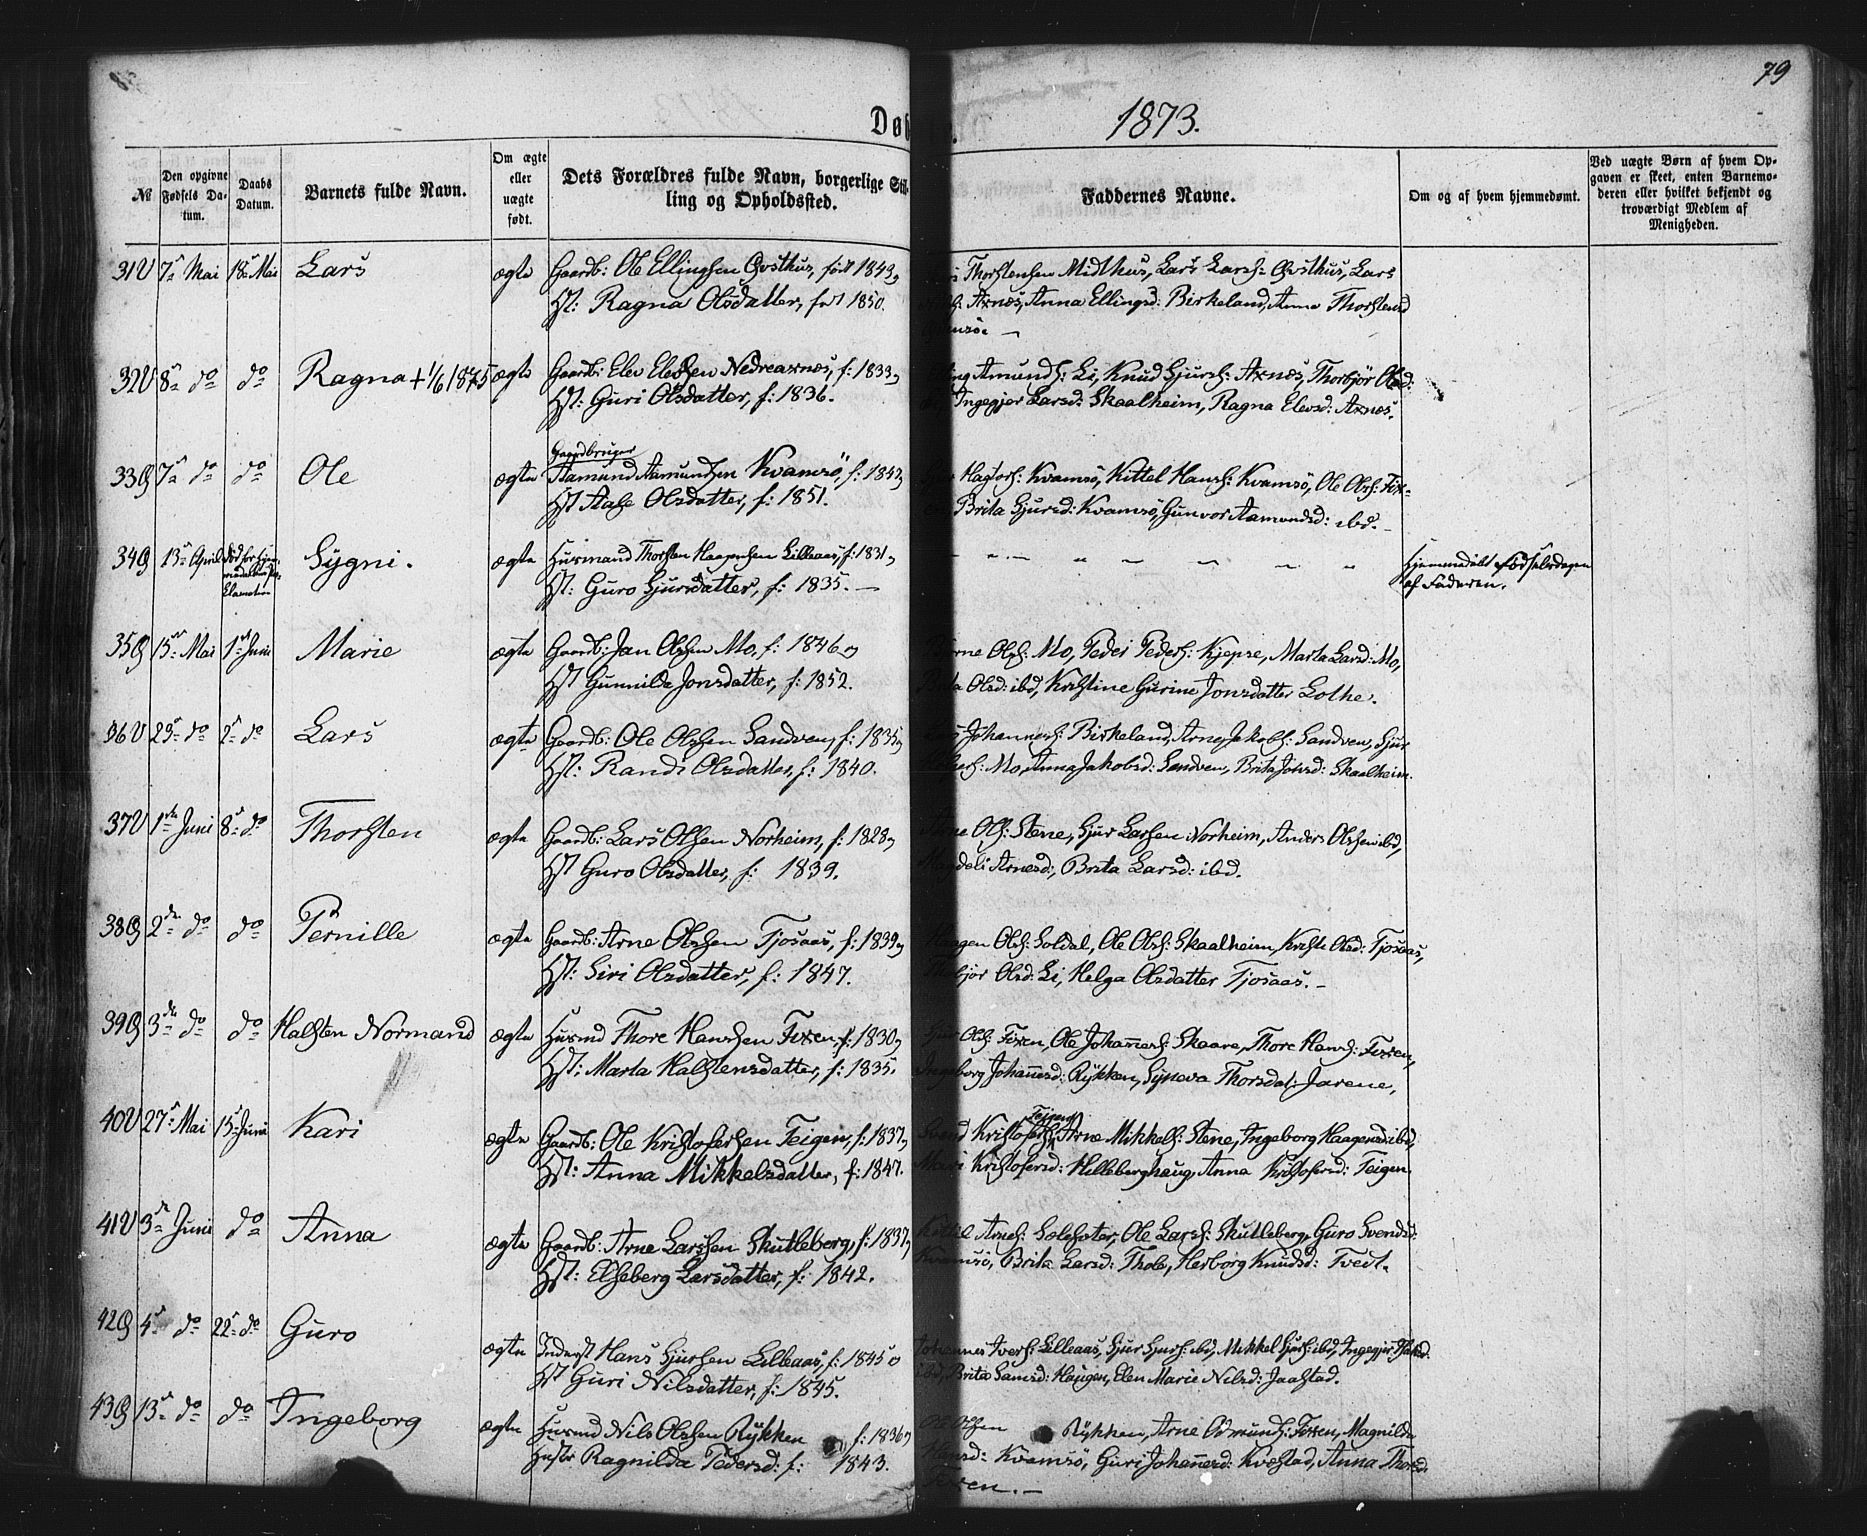 79
Døb
1873.
№
Den opgivne Fødsels Datum.
Daabs Datum.
Barnets fulde Navn.
Om ægte eller uægte født.
Dets Forældres fulde Navn, borgerlige Stilling og Opholdssted.
Faddernes Navne.
Om og af hvem hjemmedømt.
Ved uægte Børn af hvem Opgaven er skeet, enten Barnemoderen eller hvilket bekjendt og troværdigt Medlem af Menigheden.
31 7 Mai 18 Mai Lars ægte Gaardb: Ole Ellingsen Qvsthus, født 1843 og
Hst: Ragna Olsdatter, født 1850.
Thorstensen Midthus, Lars Larss: Qvsthus, Lars
Axnæs, Anna Ellingsd: Birkeland, Anna Thorstensd
32 8 do do Ragna + 1/6 1875 ægte Gaardb: Elev Elevsen Nedreaxnæs, f: 1833 og
Hst: Guri Olsdatter, f: 1836.
Amunds: Li, Knud Sjurs: Axnæs, Thorbjør Olsd:
Ingegjer Larsd: Skaalheim, Ragna Elevsd: Axnæs.
33 7 do do Ole ægte Gaardbruger
Aamund Aamundsen Kvamsö, f: 1847 og
Hst Aase Olsdatter, f: 1851.
Kvamsö, Kittel Hans: Kvamsö, Ole Ols: Fix-
Brita Sjursd: Kvamsö, Gunvor Aamundsd: ibd.
34 13 April Sygni. ægte Husmand Thorsten Haagensen Lilleaas, f: 1831 og
Hst: Guro Sjursdatter, f: 1835. —
Hjemmedøbt Fødselsdagen
af Faderen.
35 15 Mai 1 Juni Marie ægte Gaardb: Jan Olssen Mo, f: 1846 og
Hst Gunnilda Jonsdatter, f: 1852.
Ols: Mo, Peder Peders: Kjepse, Marta Larsd: Mo,
Brita Olsd: ibd, Kristine Gurine Jonsdatter Lothe.
36 29 do 2 do Lars ægte Gaardb: Ole Olssen Sandven, f: 1835 og
Hst: Randi Olsdatter, f: 1840.
Johanness: Birkeland, Arne Jakobs: Sandven, Sjur
Mo, Anna Jakobsd: Sandven, Brita Jonsd: Skaalheim.
37 1 Juni 8 do Thorsten ægte Gaardb: Lars Olssen Norheim, f: 1828 og
Hst Guro Olsdatter, f: 1839.
Arne Ols: Stene, Sjur Larssen Norheim, Anders Olssen ibd,
Magdeli Arnesd:, Brita Larsd: ibd.
38 2 do do Pernille ægte Gaardb: Arne Olssen Tjosaas, f: 1839 og
Hst: Siri Olsdatter, f: 1847.
Haagen Ols: Soldal, Ole Ols: Skaalheim, Kriste Olsd: Tjosaas,
Olsd: Li, Helga Olsdatter Tjosaas. —
39 3 do do Halsten Normand ægte Husmd Thore Hanssen Fixen, f: 1830 og
Hst: Marta Halstensdatter, f: 1835.
Sjur Ols: Fixen, Ole Johannes: Skaare, Thore Hansd: Fixen,
Ingeborg Johannesd: Rykken, Syneva Thorsdat: Jarene,
40 27 Mai 15 Juni Kari ægte Gaardb: Ole Kristofersen Teigen, f: 1837 og
Hst: Anna Mikkelsdatter, f: 1847.
Svend Kristofers: Teigen, Arne Mikkels: Stene, Ingeborg Haagensd: ibd
Mari Kristofersd: Hilleberghaug, Anna Kristofersd: Teigen
41 3 Juni do Anna ægte Gaardb: Arne Larssen Skutleberg, f: 1837 og
Hst: Elseberg Larsdatter, f: 1842.
Ole Lars: Skutleberg, Guro Svendsd:
Kvamsö, Brita Larsd: Thole, Herborg Knudsd: Tvedt.
42 4 do 22 do Guro ægte Inderst Hans Sjursen Lilleaas, f: 1845 og
Hst Guri Nilsdatter, f: 1845.
Johannes Ivers: Lilleaas, Sjur Sjurs: ibd, Mikkel Sjurs: ibd, Ingegjer
ibd, Brita Samsd: Haugen, Elen Marie Nilsd: Jaastad.
43 13 do do Ingeborg ægte Husmd Nils Olssen Rykken f: 1836 og
Hustr Ragnilda Pedersd: f: 1843.
Rykken, Arne Odmunds: Fixen, Magnilda
Hansd: Kvamsö, Guri Johannesd: Kvæstad, Anna Thorsd:
Fixen. —